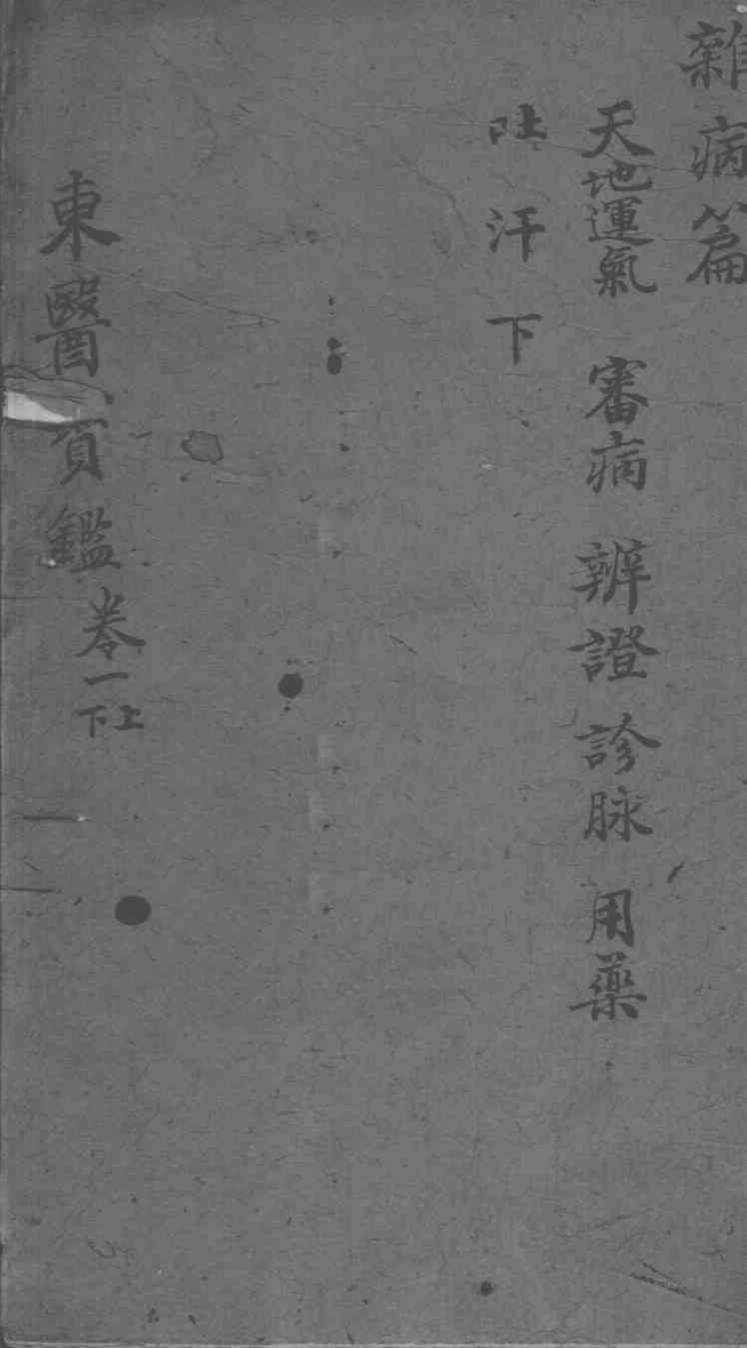 雜病篇
天地運氣 審病 辨證 診脉 用藥
吐 汗 下
東醫寶鑑 卷一 上下